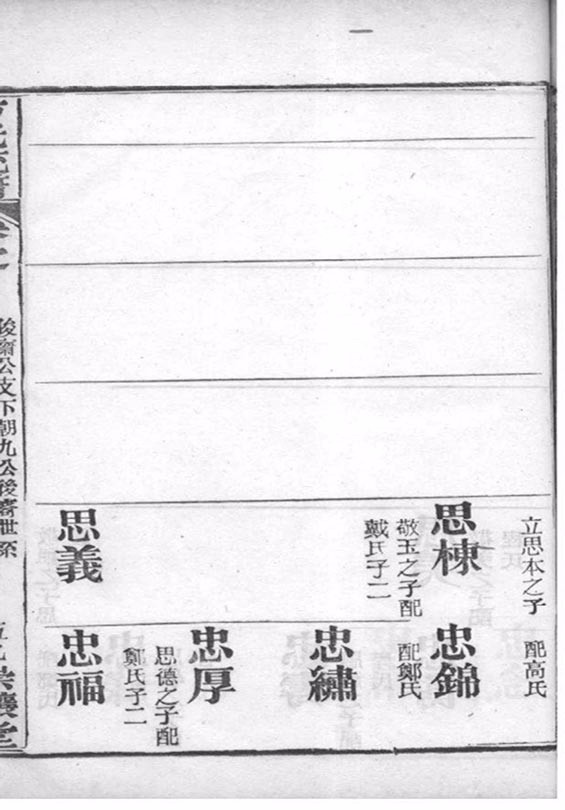 立思本之子
思棟
敬玉之子配
戴氏子二
思義
配高氏
忠錦
配鄭氏
忠繡
忠厚
思德之子配
鄭氏子二
忠福
公支下朝九公後裔世系